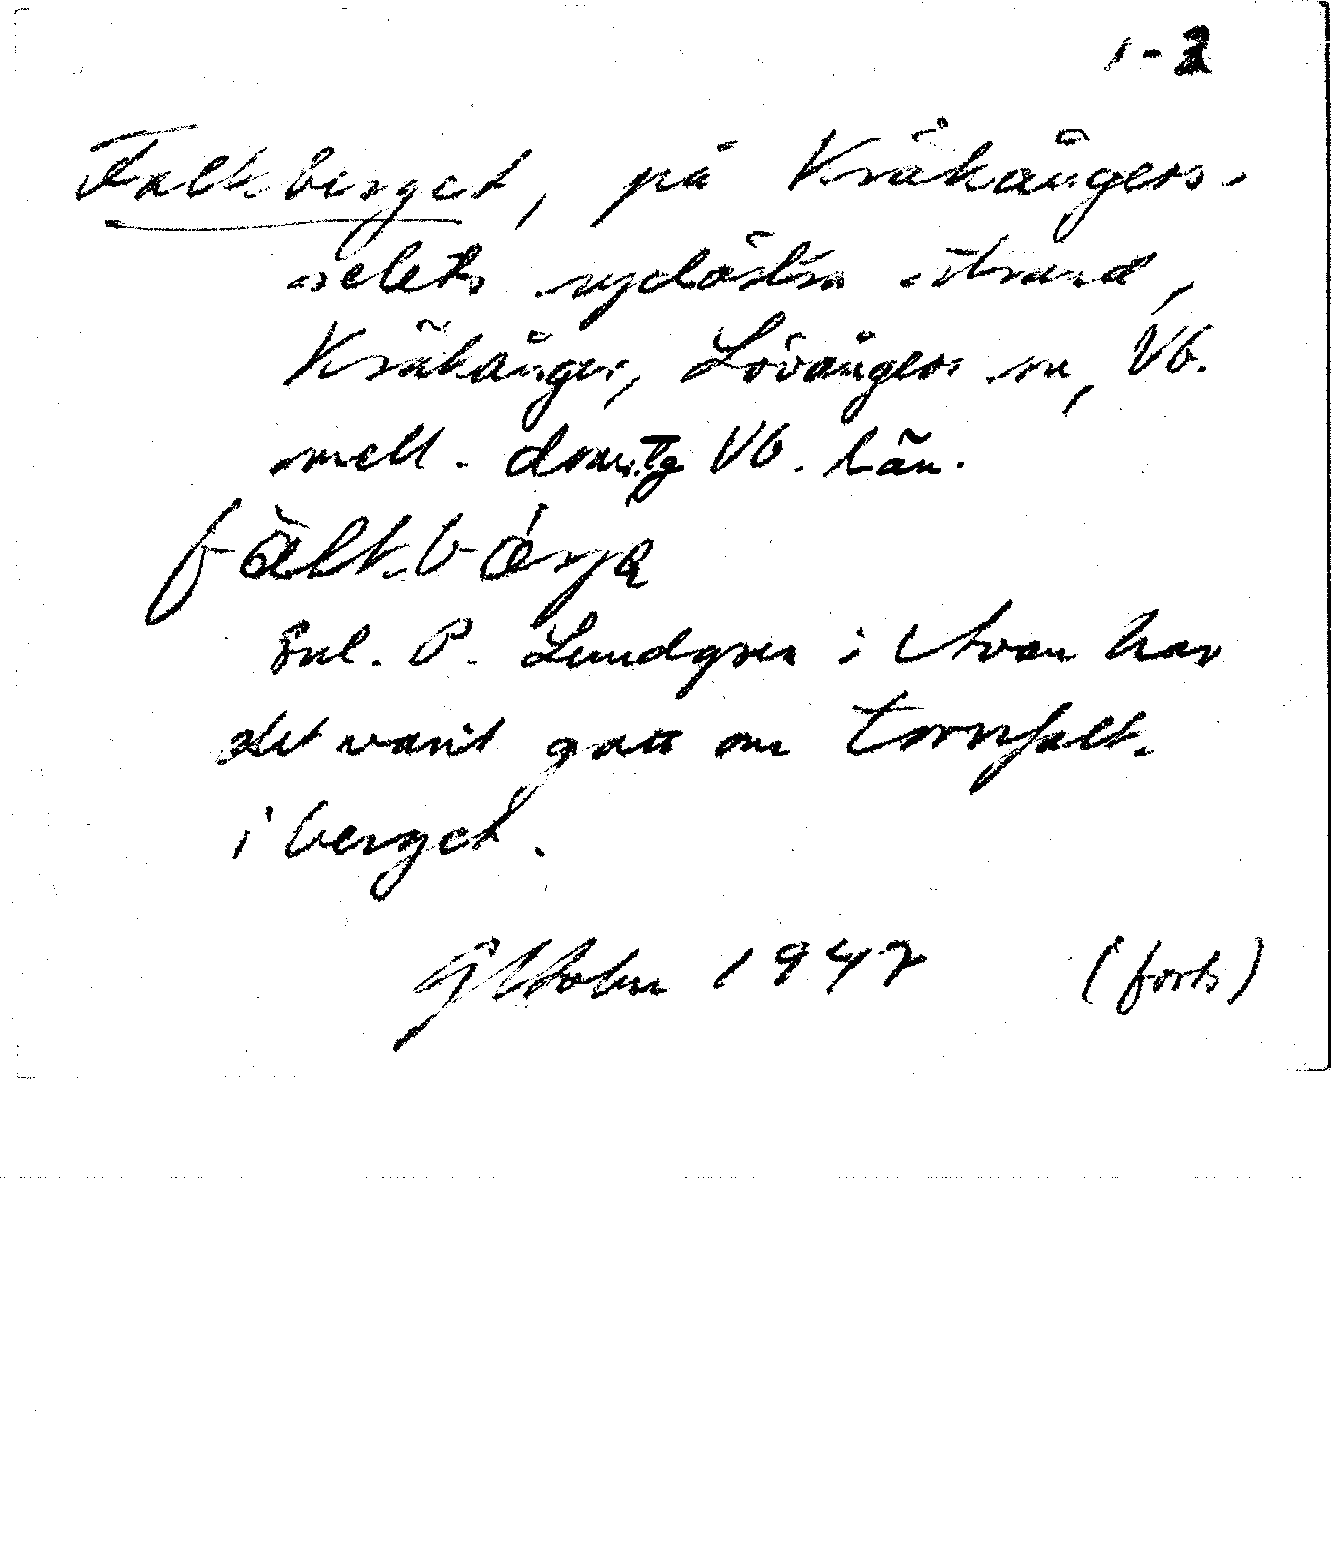 1-2
Falkberget, på Kräkångers-
selets sydöstra strand,
Kräkånger, Lövångers sn, Vb.
mell. doms.tg Vb. län.
fàlk-bérjɐ
Enl. P. Lundgren i Avan har
det varit gott om tornfalk
i berget.
1947 (forts)